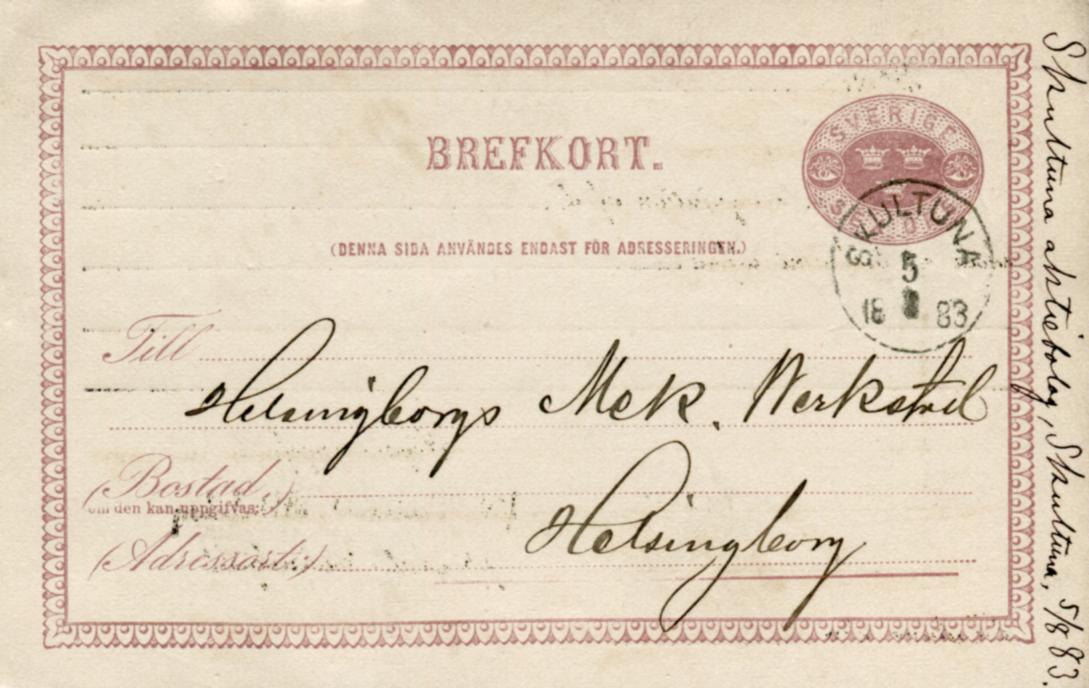 BREFKORT.
SVERIGE
(DENNA SIDA ANVÄNDES ENDAST FÖR ADRESSERINGEN.)
SKULTUNA
5
18 8 83
Till
Helsingborgs Mek. Werkstad
(Bostad)
om den kan uppgifvas:
Helsingborg
(Adressort:)
Skultuna aktiebolag, Skultuna, 5/8 83.